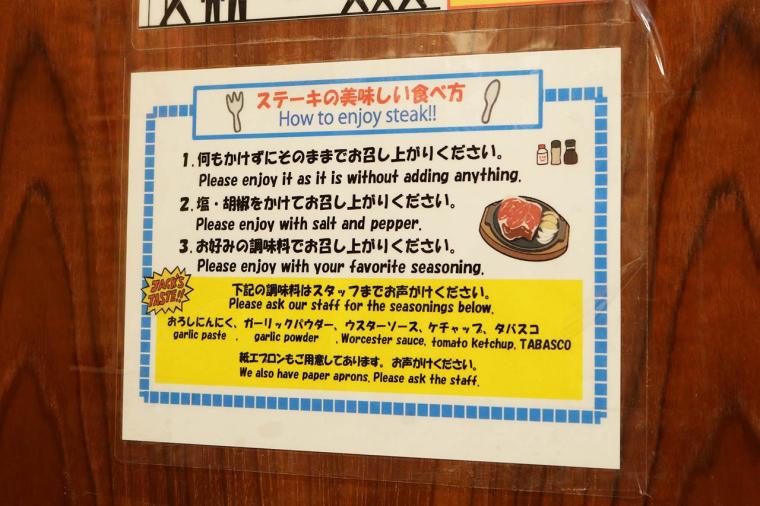 ステーキの美味しい食べ方
How to enjoy steak!!
1.何もかけずにそのままでお召し上がりください。
Please enjoy it as it is without adding anything.
2.塩・胡椒をかけてお召し上がりください。
Please enjoy with salt and pepper.
3.お好みの調味料でお召し上がりください。
Please enjoy with your favorite seasoning.
JACK'S
TASTE!!
下記の調味料はスタッフまでお声がけください。
Please ask our staff for the seasonings below.
おろしにんにく、ガーリックパウダー、ウスターソース、ケチャップ、タバスコ
garlic paste , garlic powder , Worcester sauce, tomato Ketchup, TABASCO
紙エプロンもご用意してあります。お声がけください。
We also have paper aprons. Please ask the staff.